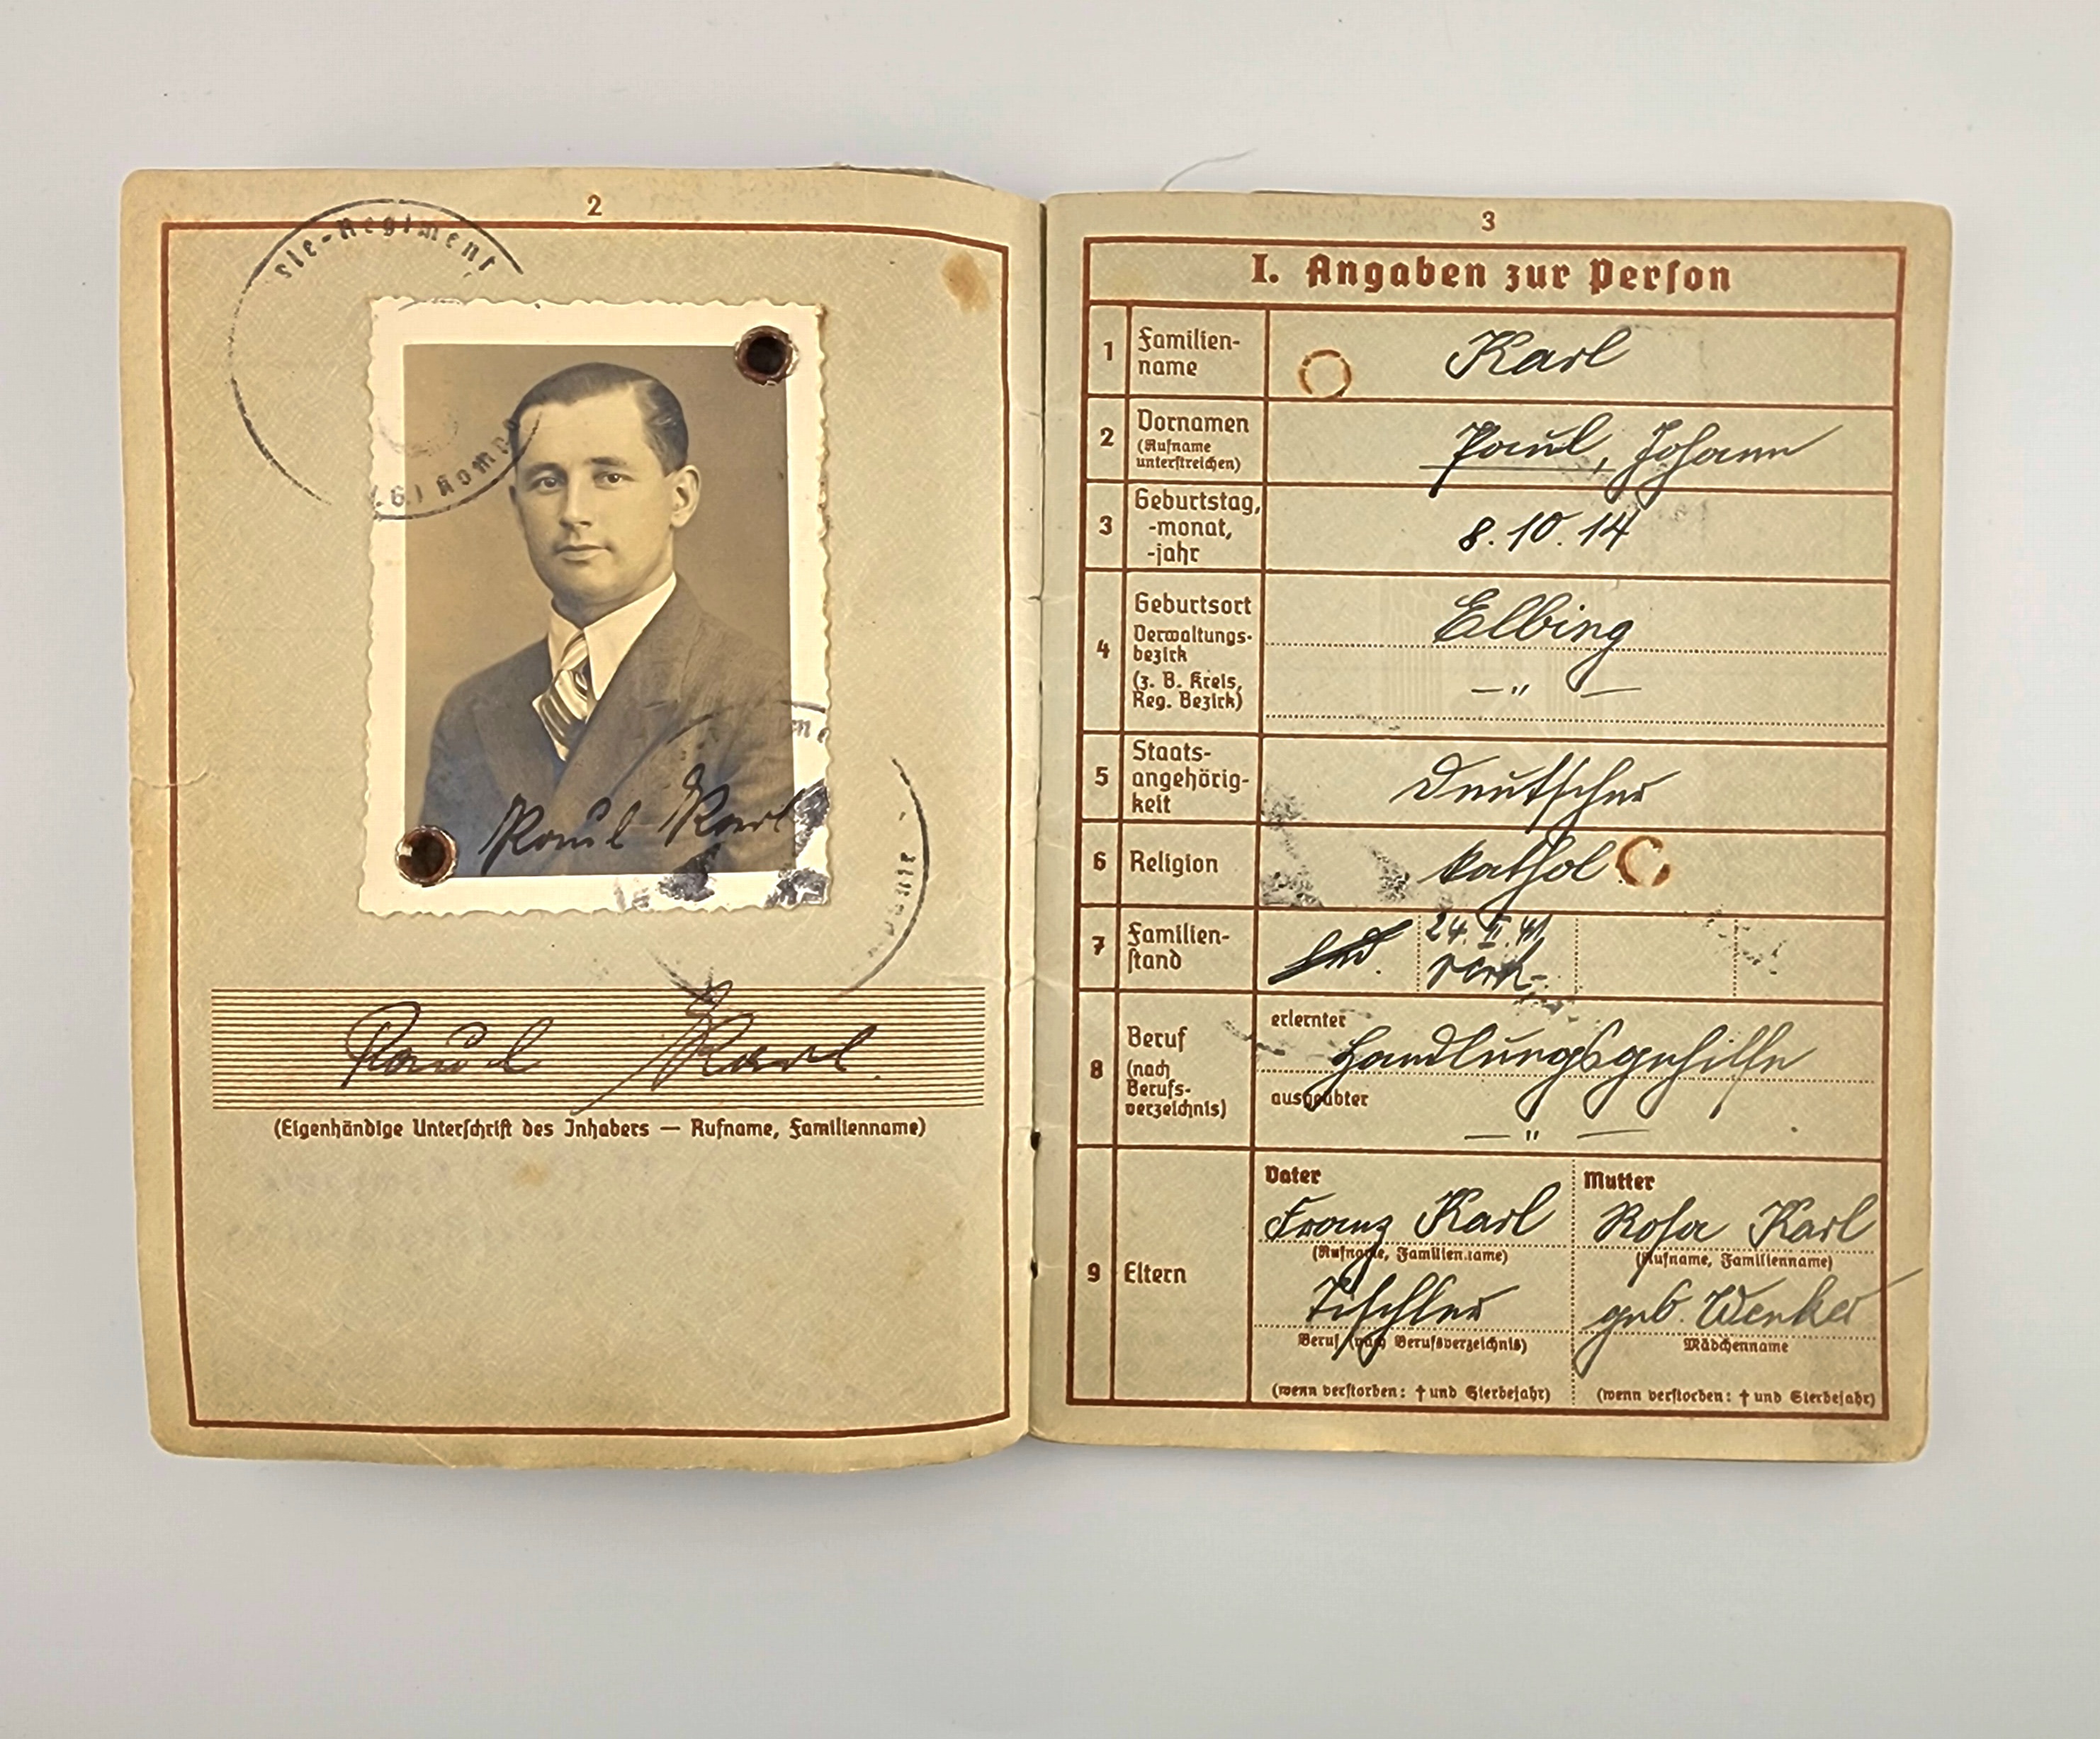 2
Paul Karl
Paul Karl
(Eigenhändige Unterschrift des Inhabers — Rufname, Familienname)
3
I. Angaben zur Person
1 Familien-
name
Karl
2 Vornamen
(Rufname
unterstreichen)
Paul, Johann
3 Geburtstag,
-monat,
-jahr
8.10.14
4 Geburtsort
Verwaltungs-
bezirk
(z. B. Kreis,
Reg. Bezirk)
Elbing
— " —
5 Staats-
angehörig-
keit
Deutscher
6 Religion
kathol
7 Familien-
stand
led. 24. II. 41
verh.
8 Beruf
(nach
Berufs-
verzeichnis)
erlernter
Handlungsgehilfe
ausgeübter
— " —
9 Eltern
Vater
Franz Karl
(Rufname, Familienname)
Tischler
Beruf (nach Berufsverzeichnis)
(wenn verstorben: † und Sterbejahr)
Mutter
Rosa Karl
(Rufname, Familienname)
geb. Wenker
Mädchenname
(wenn verstorben: † und Sterbejahr)